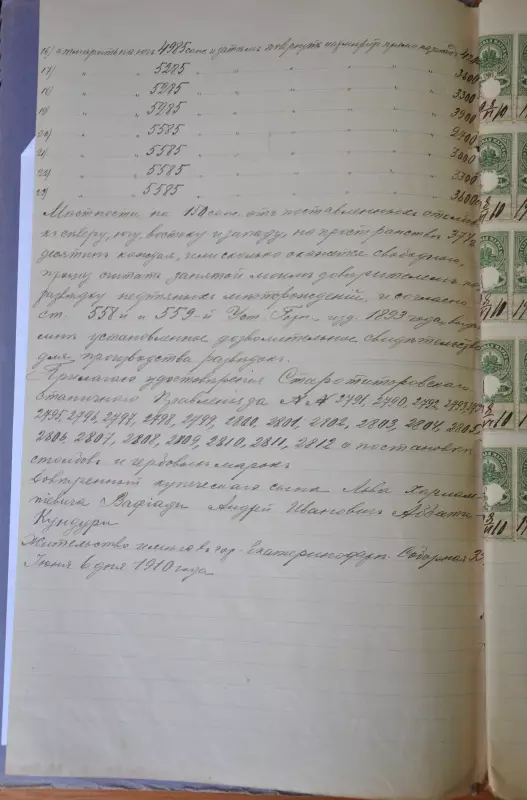 16) отмерить на югъ 4985 саж. и затемъ повернуть на прямо на западъ
17) " " 5285 " " " " 3000
18) " " 5285 " " " " 3300
19) " " 5285 " " " " 3900
20) " " 5585 " " " " 2700
21) " " 5585 " " " " 3000
22) " " 5585 " " " " 3300
23) " " 5585 " " " " 3600
Местности на 150 саж. отъ поставленныхъ столбовъ
къ северу, югу, востоку и западу, на пространстве 37½
десятинъ каждая, или сколько окажется свободной,
прошу считать занятой моимъ доверителемъ на
разведку нефтяныхъ месторождений, и согласно
ст. 558 и 559-й Уст. Горн. изд. 1893 года, выдать
мне установленное дозволительное свидетельство
для производства разведокъ.
Прилагаю удостоверения Старотитаровскаго
станичнаго Правления за №№ 2791, 2790, 2792, 2793, 2794
2795, 2796, 2797, 2798, 2799, 2800, 2801, 2802, 2803, 2804, 2805
2806, 2807, 2808, 2809, 2810, 2811, 2812 о постановке
столбовъ и гербовыхъ марокъ
Доверенный купеческаго сына Льва Харлам
пиевича Вафиади Андрей Ивановичъ Аббати
Кундури
Жительство имею въ гор. Екатеринодаре Соборная
Июня 6 дня 1910 года